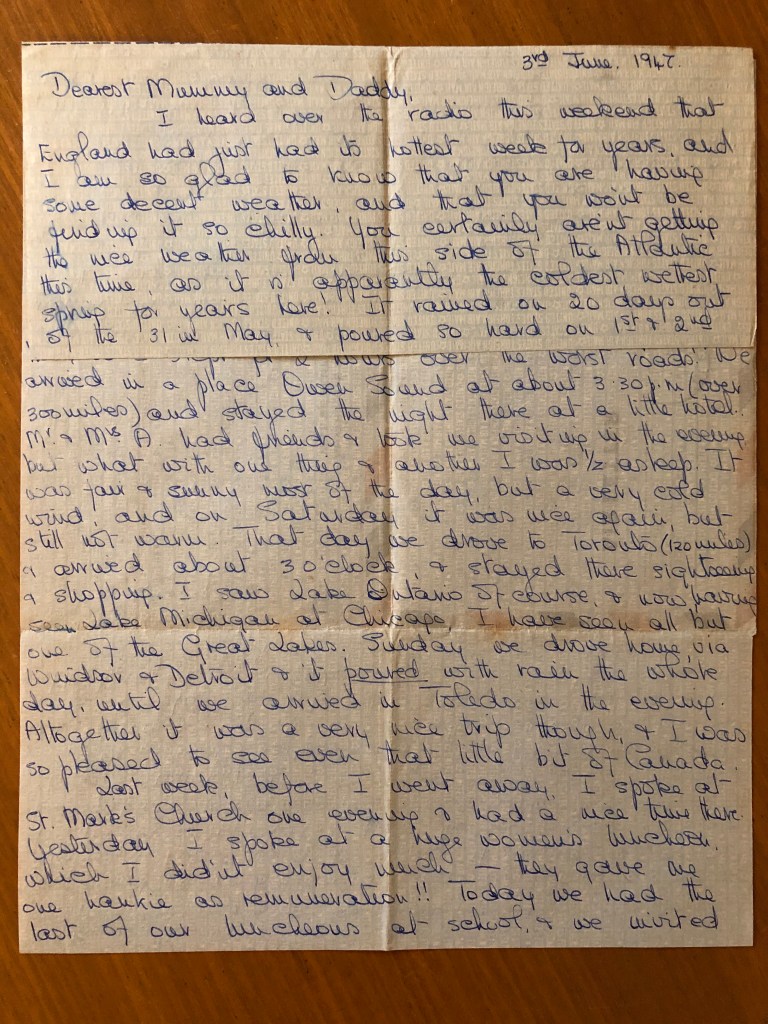 3rd June. 1947.
Dearest Mummy and Daddy,
I heard over the radio this weekend that
England had just had its hottest week for years, and
I am so glad to know that you are having
some decent weather, and that you won't be
finding it so chilly. You certainly aren't getting
the nice weather from this side of the Atlantic
this time, as it is apparantly the coldest wettest
spring for years here! It rained on 20 days out
of the 31 in May, & poured so hard on 1st & 2nd
hours over the worst roads. We
arrived in a place Owen Sound at about 3.30 p.m (over
300 miles) and stayed the night there at a little hotel.
Mr. & Mrs A. had friends & took me visiting in the evening
but what with one thing & another I was ½ asleep. It
was fair & sunny most of the day, but a very cold
wind, and on Saturday it was nice again, but
still not warm. That day we drove to Toronto (120 miles)
& arrived about 3 o'clock, & stayed there sightseeing
& shopping. I saw Lake Ontario of course, & now having
seen Lake Michigan at Chicago, I have seen all but
one of the Great Lakes. Sunday we drove home, via
Windsor & Detroit & it poured with rain the whole
day, until we arrived in Toledo in the evening.
Altogether it was a very nice trip though, & I was
so pleased to see even that little bit of Canada.
Last week, before I went away, I spoke at
St. Mark's Church one evening & had a nice time there.
Yesterday I spoke at a huge women's luncheon,
which I did'nt enjoy much — they gave me
one hankie as remuneration!! Today we had the
last of our luncheons at school, & we invited